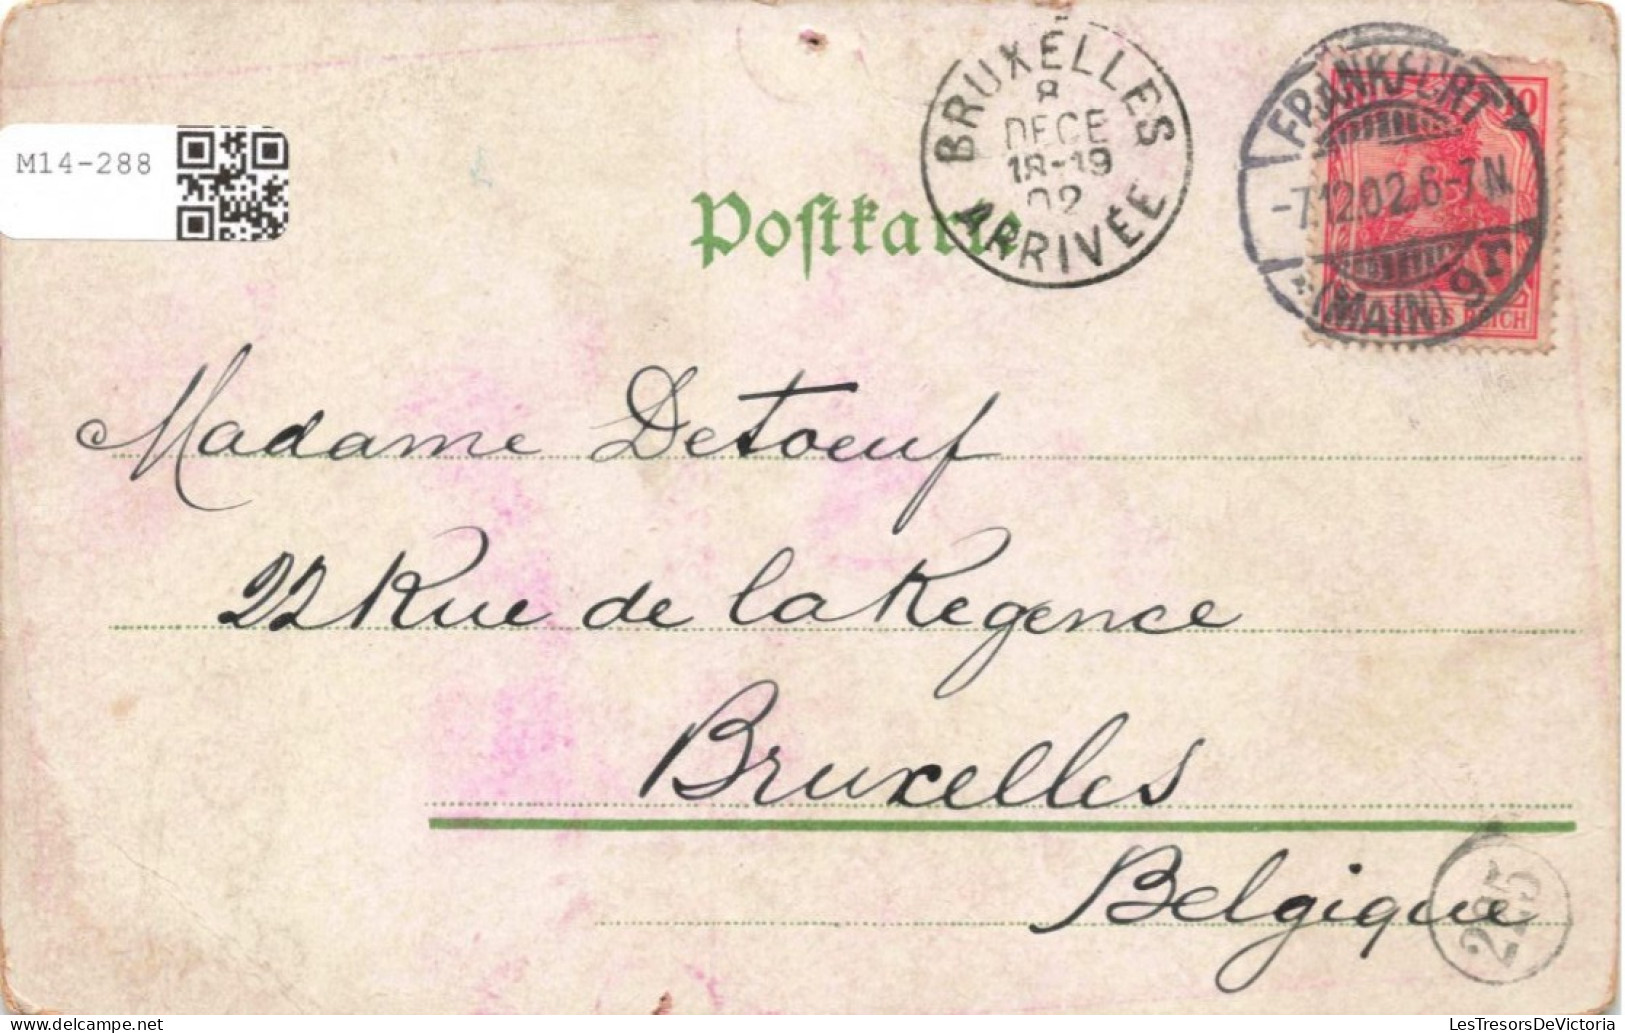 BRUXELLES
8
DECE
18-19
02
ARRIVÉE
FRANKFURT
-7.12.02.6-7N.
*(MAIN) 9r
10
REICH
M14-288
Postkarte
Madame Detoeuf
22 Rue de la Regence
Bruxelles
Belgique
225
LesTresorsDeVictoria